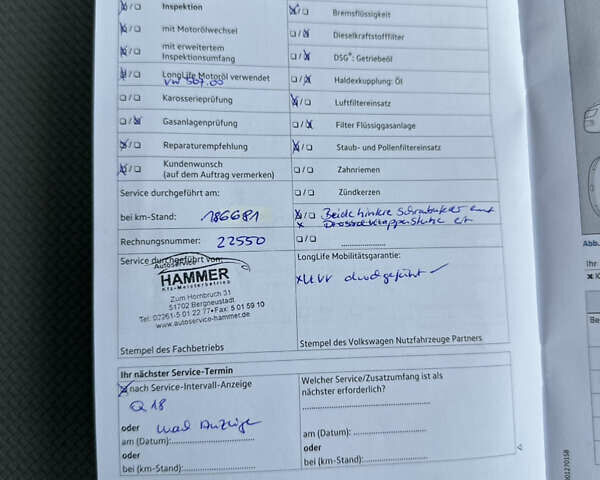 Inspektion
mit Motorölwechsel
mit erweitertem
Inspektionsumfang
LongLife Motoröl verwendet
VW 507.00
Karosserieprüfung
Gasanlagenprüfung
Reparaturempfehlung
Kundenwunsch
(auf dem Auftrag vermerken)
Bremsflüssigkeit
Dieselkraftstofffilter
DSG®: Getriebeöl
Haldexkupplung: Öl
Luftfiltereinsatz
Filter Flüssiggasanlage
Staub- und Pollenfiltereinsatz
Zahnriemen
Zündkerzen
Beide hintere
Service durchgeführt am:
bei km-Stand: 186681
Rechnungsnummer: 22550
Service durchgeführt von:
Autoservice
HAMMER
Kfz-Meisterbetrieb
Zum Hornbruch 31
51702 Bergneustadt
Tel: 02261-5 01 22 77•Fax: 5 01 59 10
www.autoservice-hammer.de
Stempel des Fachbetriebs
LongLife Mobilitätsgarantie:
durchgeführt
Stempel des Volkswagen Nutzfahrzeuge Partners
Ihr nächster Service-Termin
nach Service-Intervall-Anzeige
Q18
oder nach Anzeige
am (Datum):
oder
bei (km-Stand):
Welcher Service/Zusatzumfang ist als
nächster erforderlich?
am (Datum):
oder
bei (km-Stand):
Abb.
Ihr